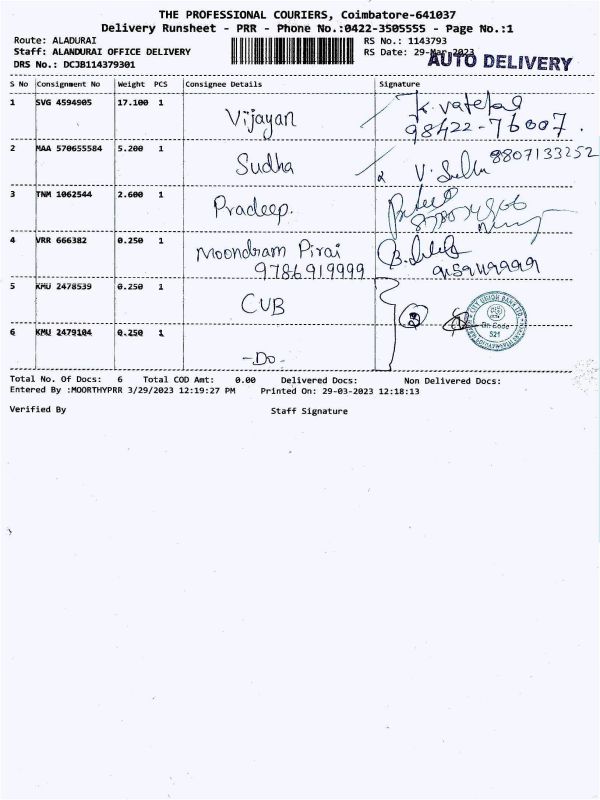 THE PROFESSIONAL COURIERS, Coimbatore-641037
Delivery Runsheet - PRR - Phone No.:0422-3505555 - Page No.:1
Route: ALADURAI RS No.: 1143793
Staff: ALANDURAI OFFICE DELIVERY RS Date: 29-Mar-2023
AUTO DELIVERY
DRS No.: DCJB114379301
S No Consignment No Weight PCS Consignee Details Signature
1 SVG 4594905 17.100 1 Vijayan K.
98422-76007.
2 MAA 570655584 5.200 1 Sudha 8807133252
3 TNM 1062544 2.600 1 Pradeep.
4 VRR 666382 0.250 1 Moondram Pirai
9786919999
5 KMU 2478539 0.250 1 CUB
2
CITY UNION BANK LTD.
Br. Code
521
6 KMU 2479104 0.250 1
-Do-
Total No. Of Docs: 6 Total COD Amt: 0.00 Delivered Docs: Non Delivered Docs:
Entered By :MOORTHYPRR 3/29/2023 12:19:27 PM Printed On: 29-03-2023 12:18:13
Verified By Staff Signature